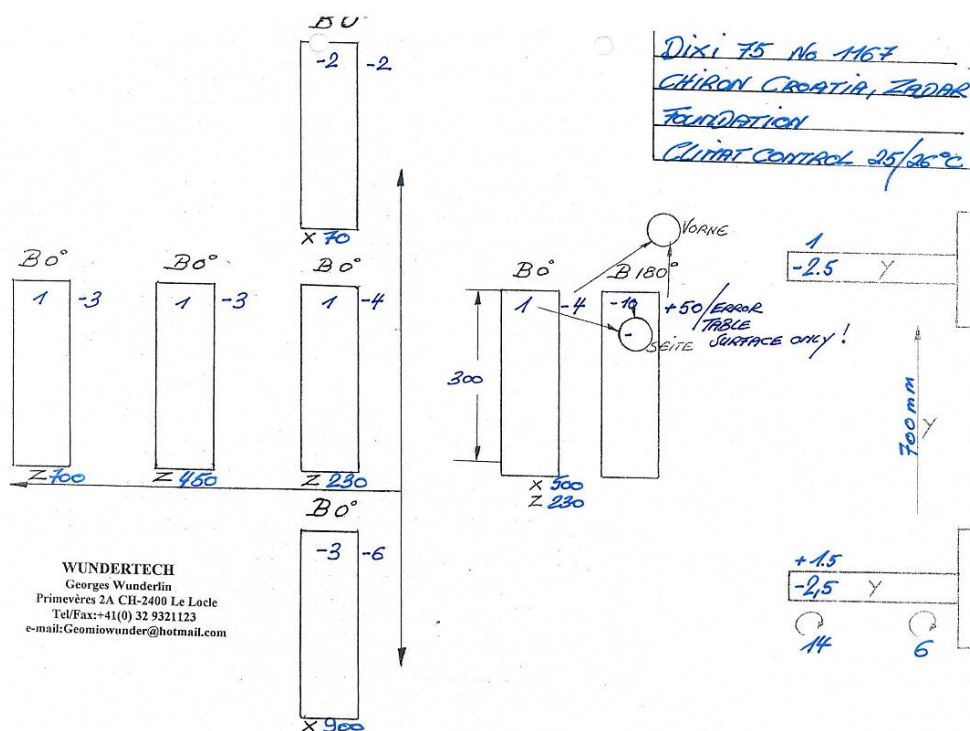 B 0°
-2 -2
X 70
Dixi 75 No 1167
CHIRON CROATIA, ZADAR
FOUNDATION
CLIMAT CONTROL 25/26°C
B 0°
1 -3
Z 700
B 0°
1 -3
Z 450
B 0°
1 -4
Z 230
B 0°
1 -4
300
X 500
Z 230
B 180°
-10
-
VORNE
SEITE
+50/ERROR
TABLE
SURFACE ONLY!
B 0°
-3 -6
X 900
1
-2.5 Y
700 mm
Y
+1.5
-2,5 Y
14 6
WUNDERTECH
Georges Wunderlin
Primevères 2A CH-2400 Le Locle
Tel/Fax:+41(0) 32 9321123
e-mail:Geomiowunder@hotmail.com